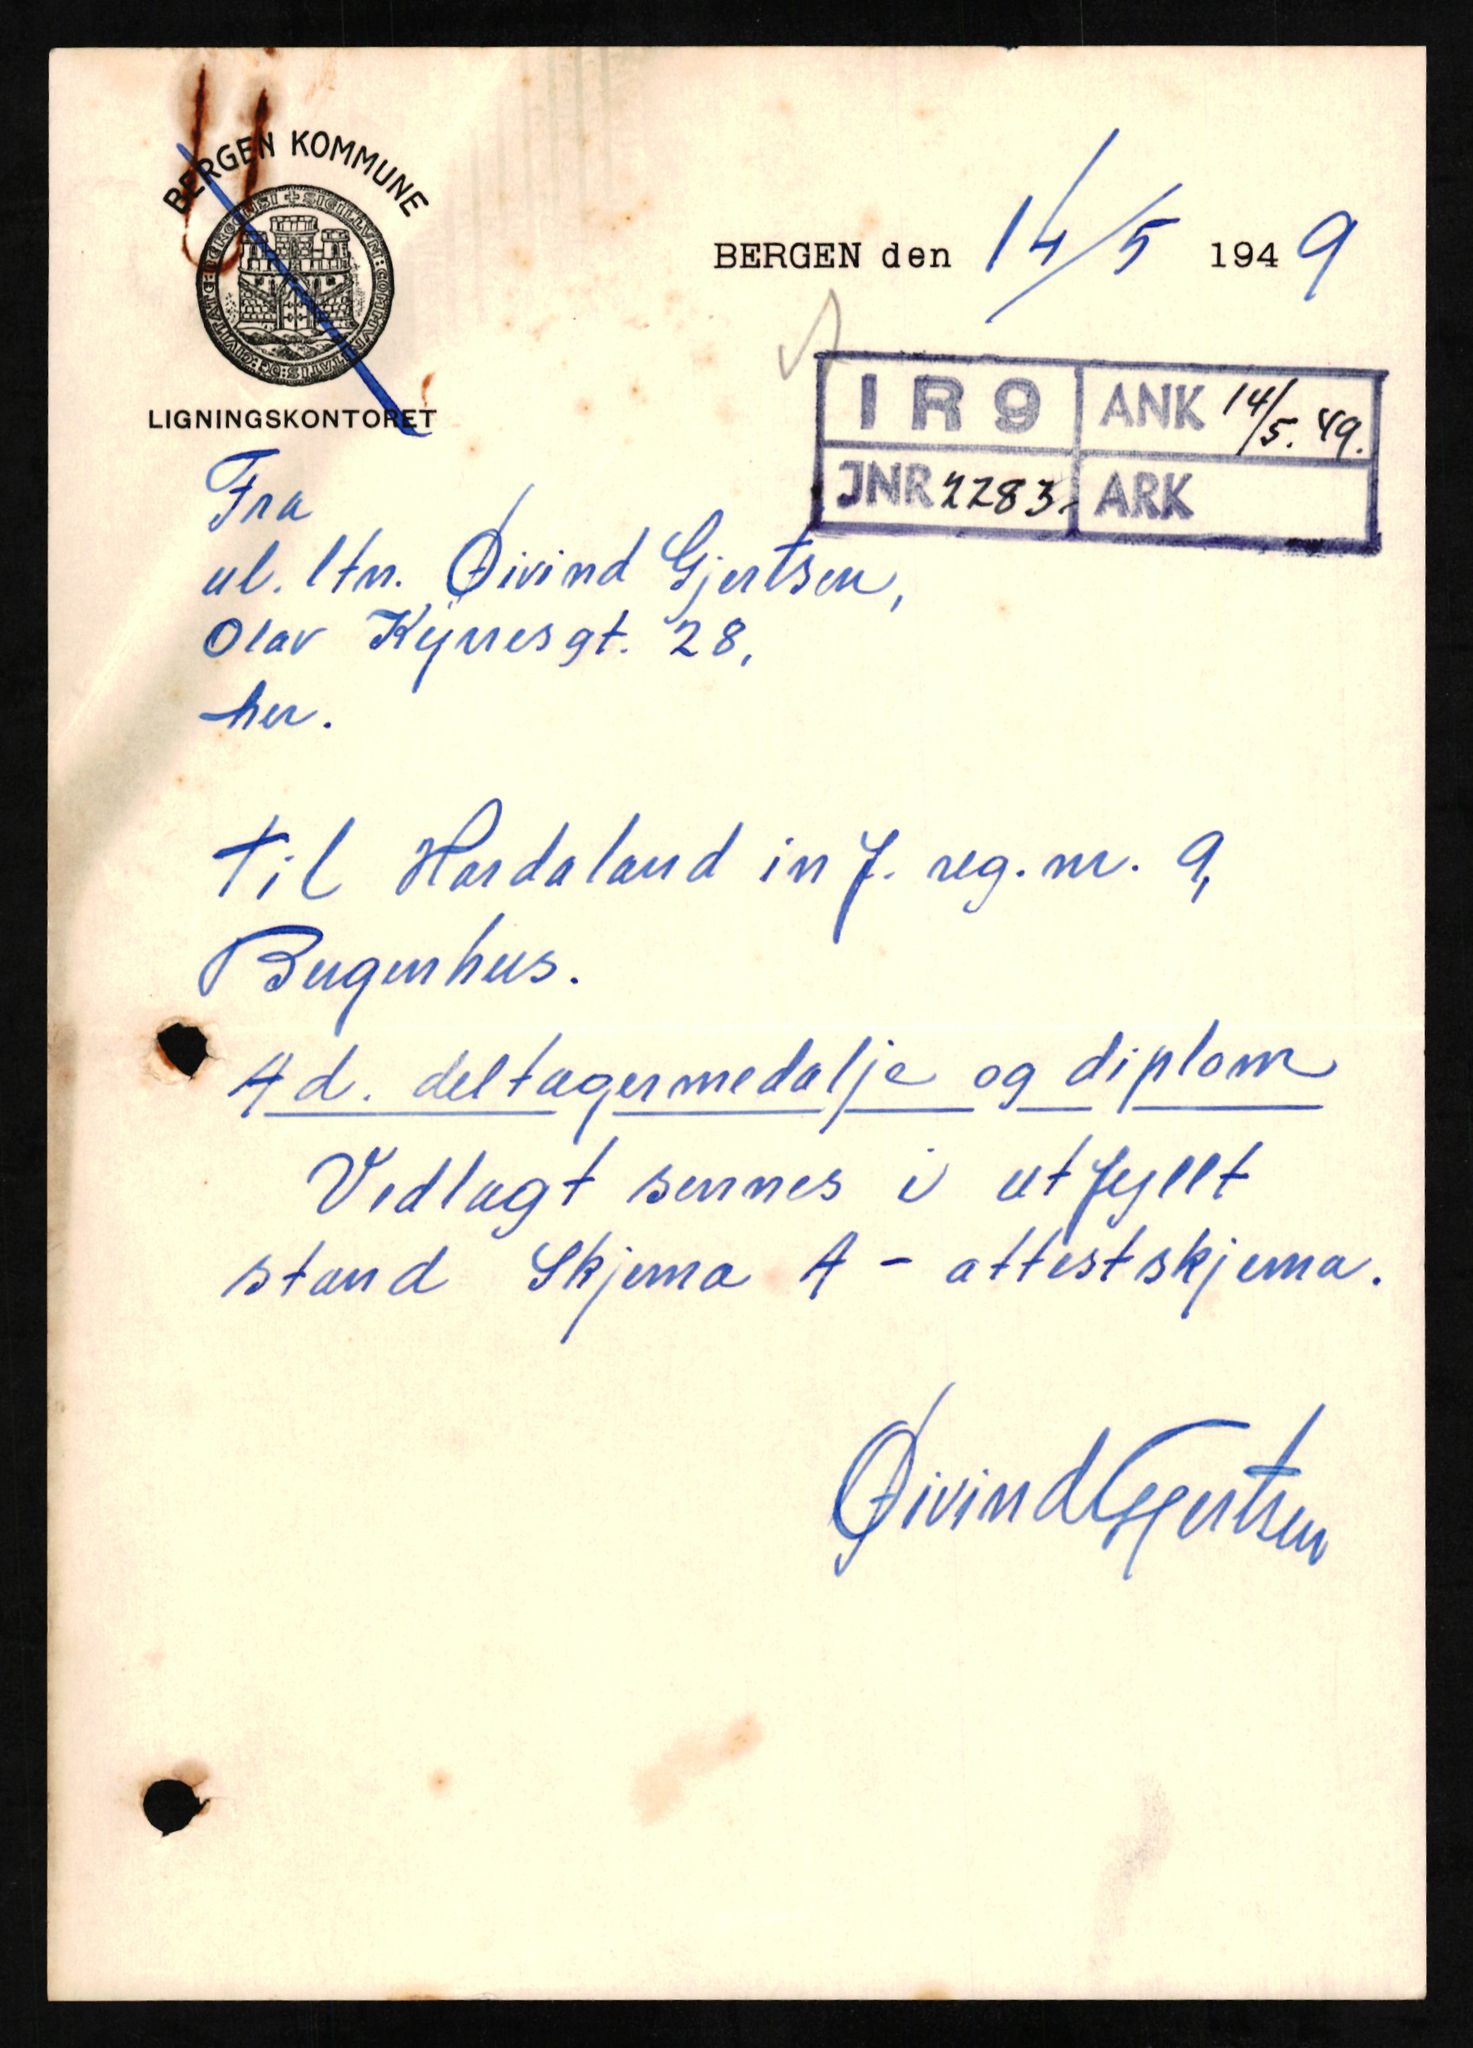 BERGEN KOMMUNE
SIGILLVM : COMMVNITATIS : DE : CIVITATE : BERGENSI
LIGNINGSKONTORET
BERGEN den 14/5 1949
IR9 ANK 14/5. 49.
JNR 2283 ARK
Fra
ul. ltn. Øivind Gjertsen,
Olav Kyrresgt. 28,
her.
Til Hordaland inf. reg. nr. 9,
Bergenhus.
Ad. deltagermedalje og diplom
Vedlagt sennes i utfyllt
stand Skjema A - attestskjema.
Øivind Gjertsen